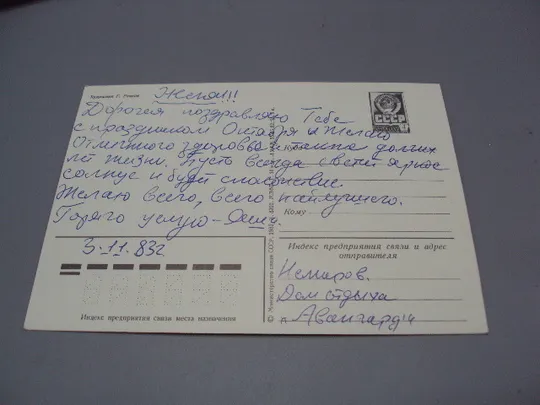 Художник Г. Ренков
Женя!!!
Дорогая поздравляю Тебе
с праздником Октября и Желаю
Отличного здоровья и долгих
лет жизни. Пусть всегда светит яркое
солнце и будет спокойствие.
Желаю всего, всего наилучшего.
Горячо целую
3.11.83г
СССР
Куда
Кому
Индекс предприятия связи и адрес
отправителя
Немиров.
Дом отдыха
"Авангард"
Индекс предприятия связи места назначения
© Министерство связи СССР.